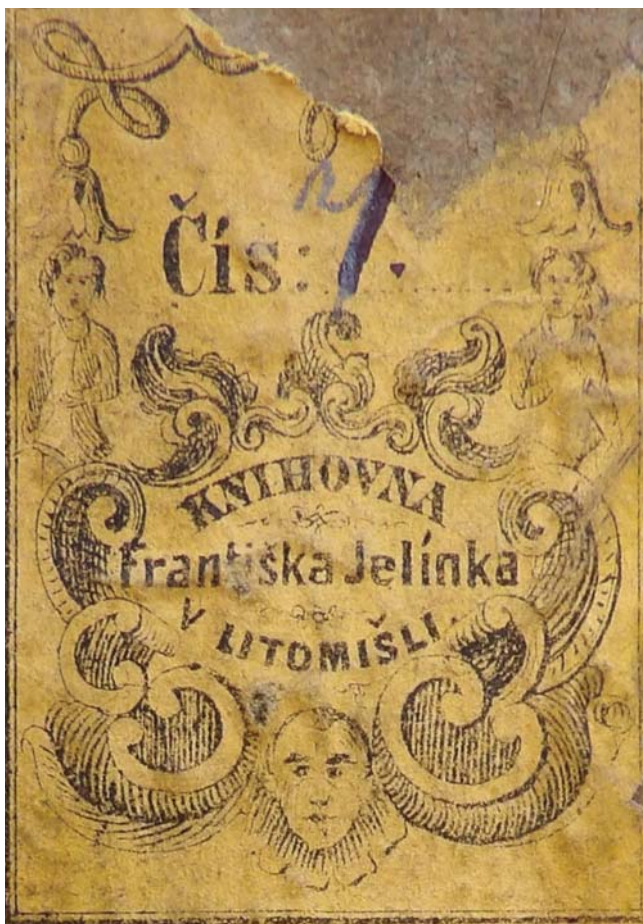 Čís: 7.
KNIHOVNA
Františka Jelínka
V LITOMIŠLI.